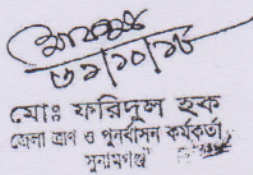 ৩১/১০/১৮
মোঃ ফরিদুল হক
জেলা ত্রাণ ও পুনর্বাসন কর্মকর্তা
সুনামগঞ্জ